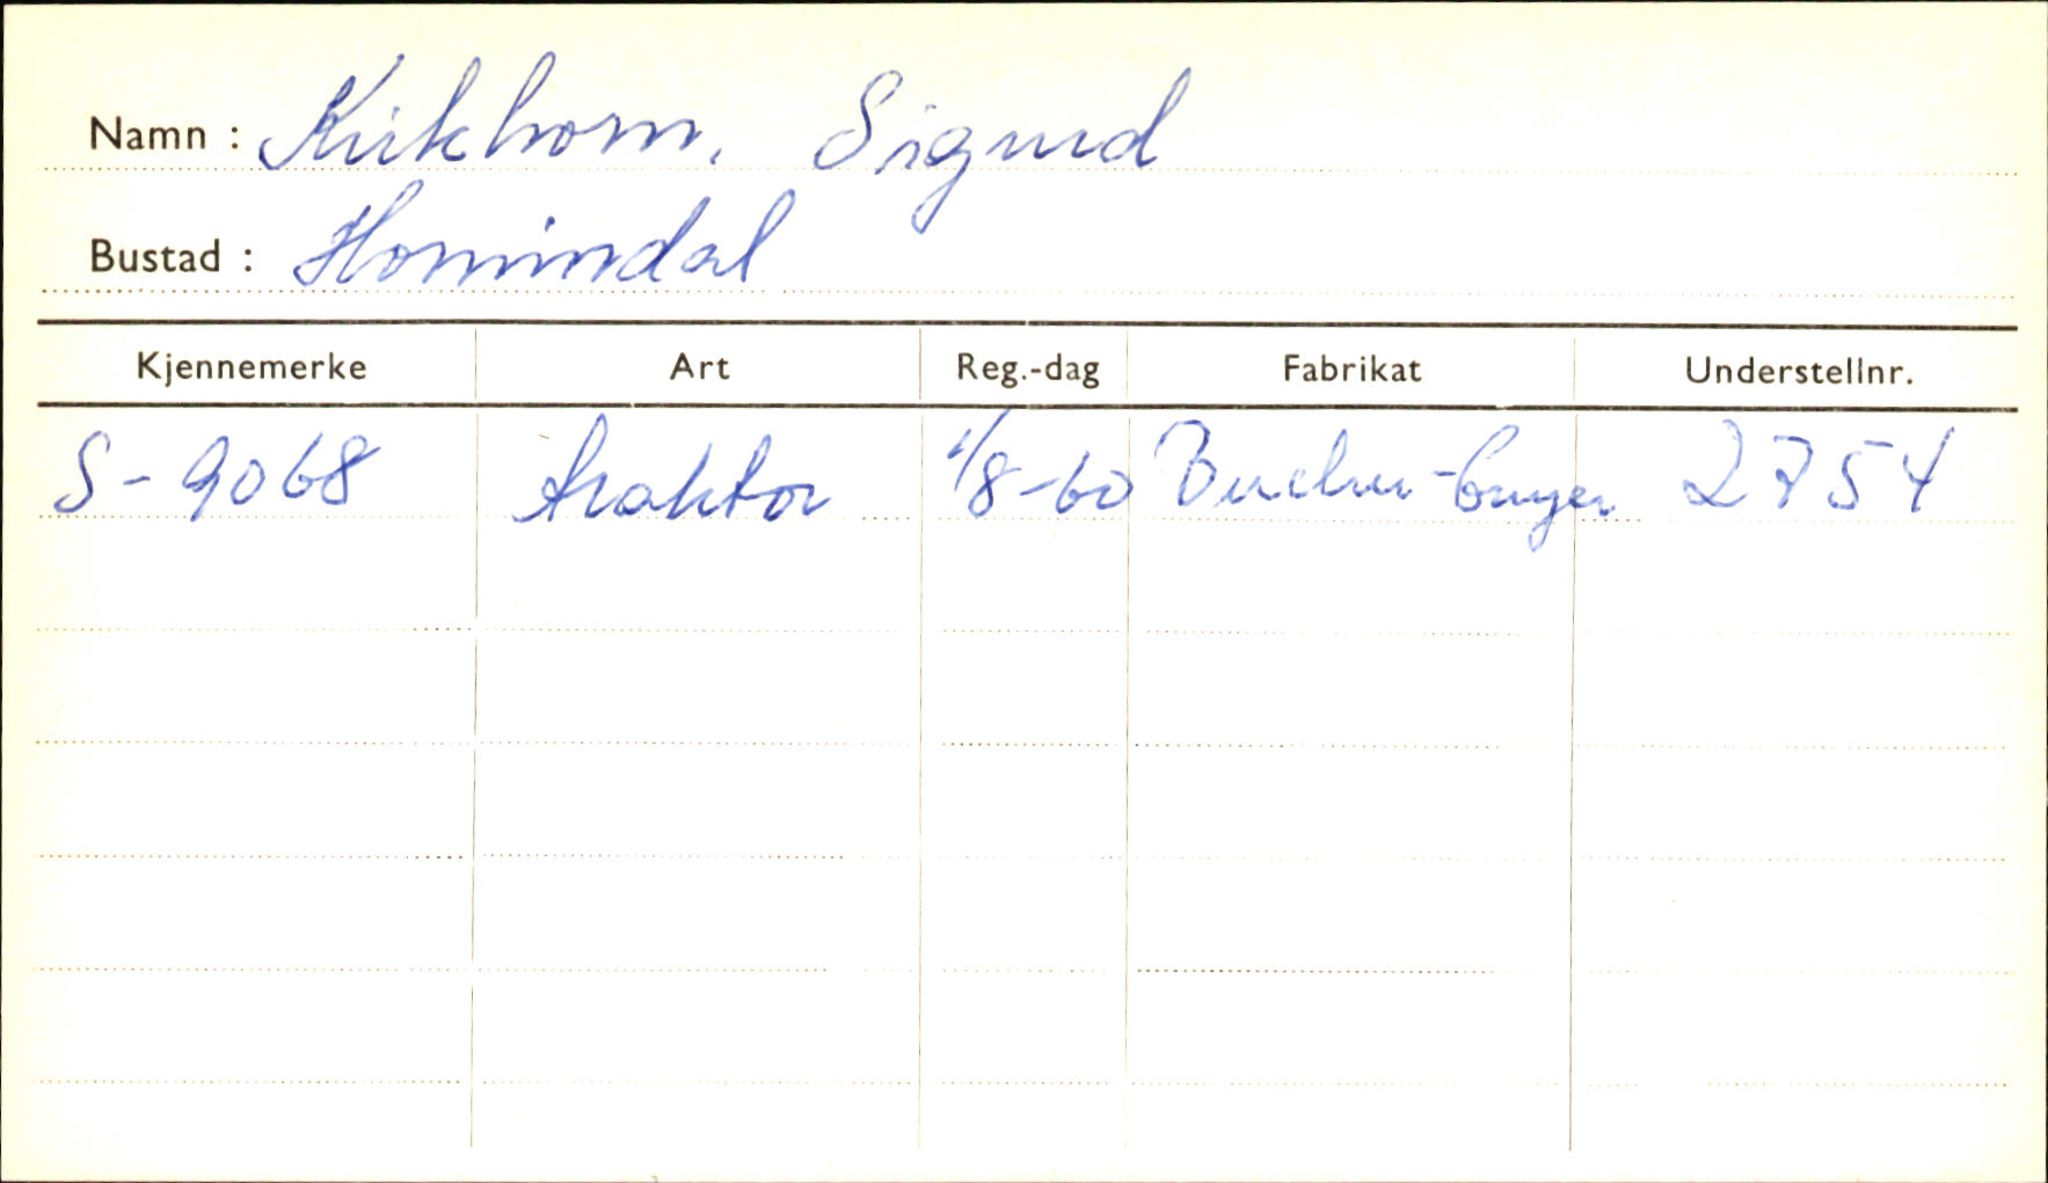 Namn : Kirkhorn, Sigurd
Bustad : Hornindal
Kjennemerke Art Reg.-dag Fabrikat Understellnr.
S-9068 traktor 1/8-60 Bucher-Guyer 2754